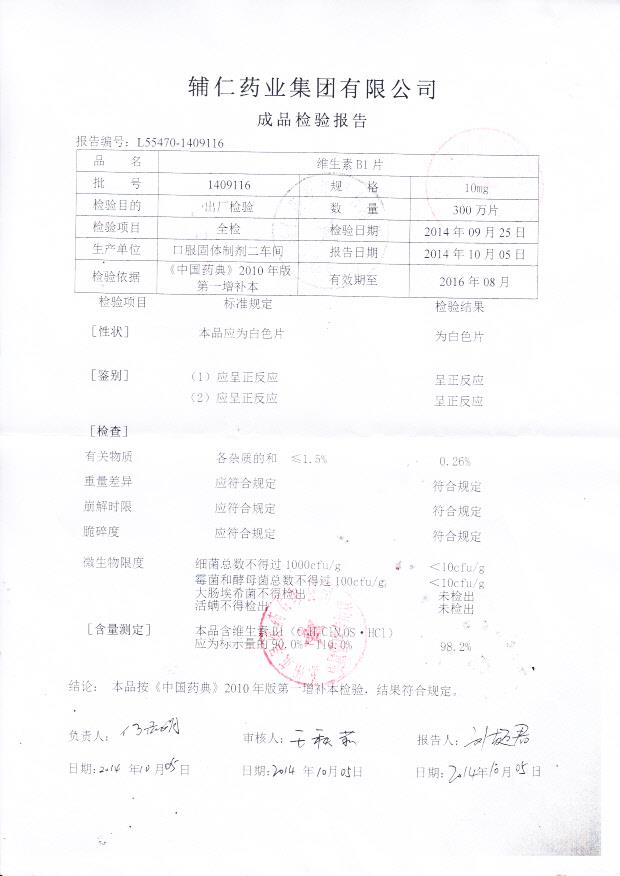 辅仁药业集团有限公司
成品检验报告
报告编号：L55470-1409116
品 名 维生素B1片
批 号 1409116 规 格 10mg
检验目的 出厂检验 数 量 300万片
检验项目 全检 检验日期 2014年09月25日
生产单位 口服固体制剂二车间 报告日期 2014年10月05日
检验依据 《中国药典》2010年版第一增补本 有效期至 2016年08月
检验项目 标准规定 检验结果
[性状] 本品应为白色片 为白色片
[鉴别] （1）应呈正反应 呈正反应
（2）应呈正反应 呈正反应
[检查]
有关物质 各杂质的和 ≤1.5% 0.26%
重量差异 应符合规定 符合规定
崩解时限 应符合规定 符合规定
脆碎度 应符合规定 符合规定
微生物限度 细菌总数不得过1000cfu/g <10cfu/g
霉菌和酵母菌总数不得过100cfu/g, <10cfu/g
大肠埃希菌不得检出 未检出
活螨不得检出 未检出
[含量测定] 本品含维生素B1（ OS·HCl）
应为标示量的90.0%~110.0% 98.2%
结论： 本品按《中国药典》2010年版第一增补本检验，结果符合规定。
负责人： 审核人：王 报告人：
日期:2014年10月05日 日期:2014年10月05日 日期:2014年10月05日